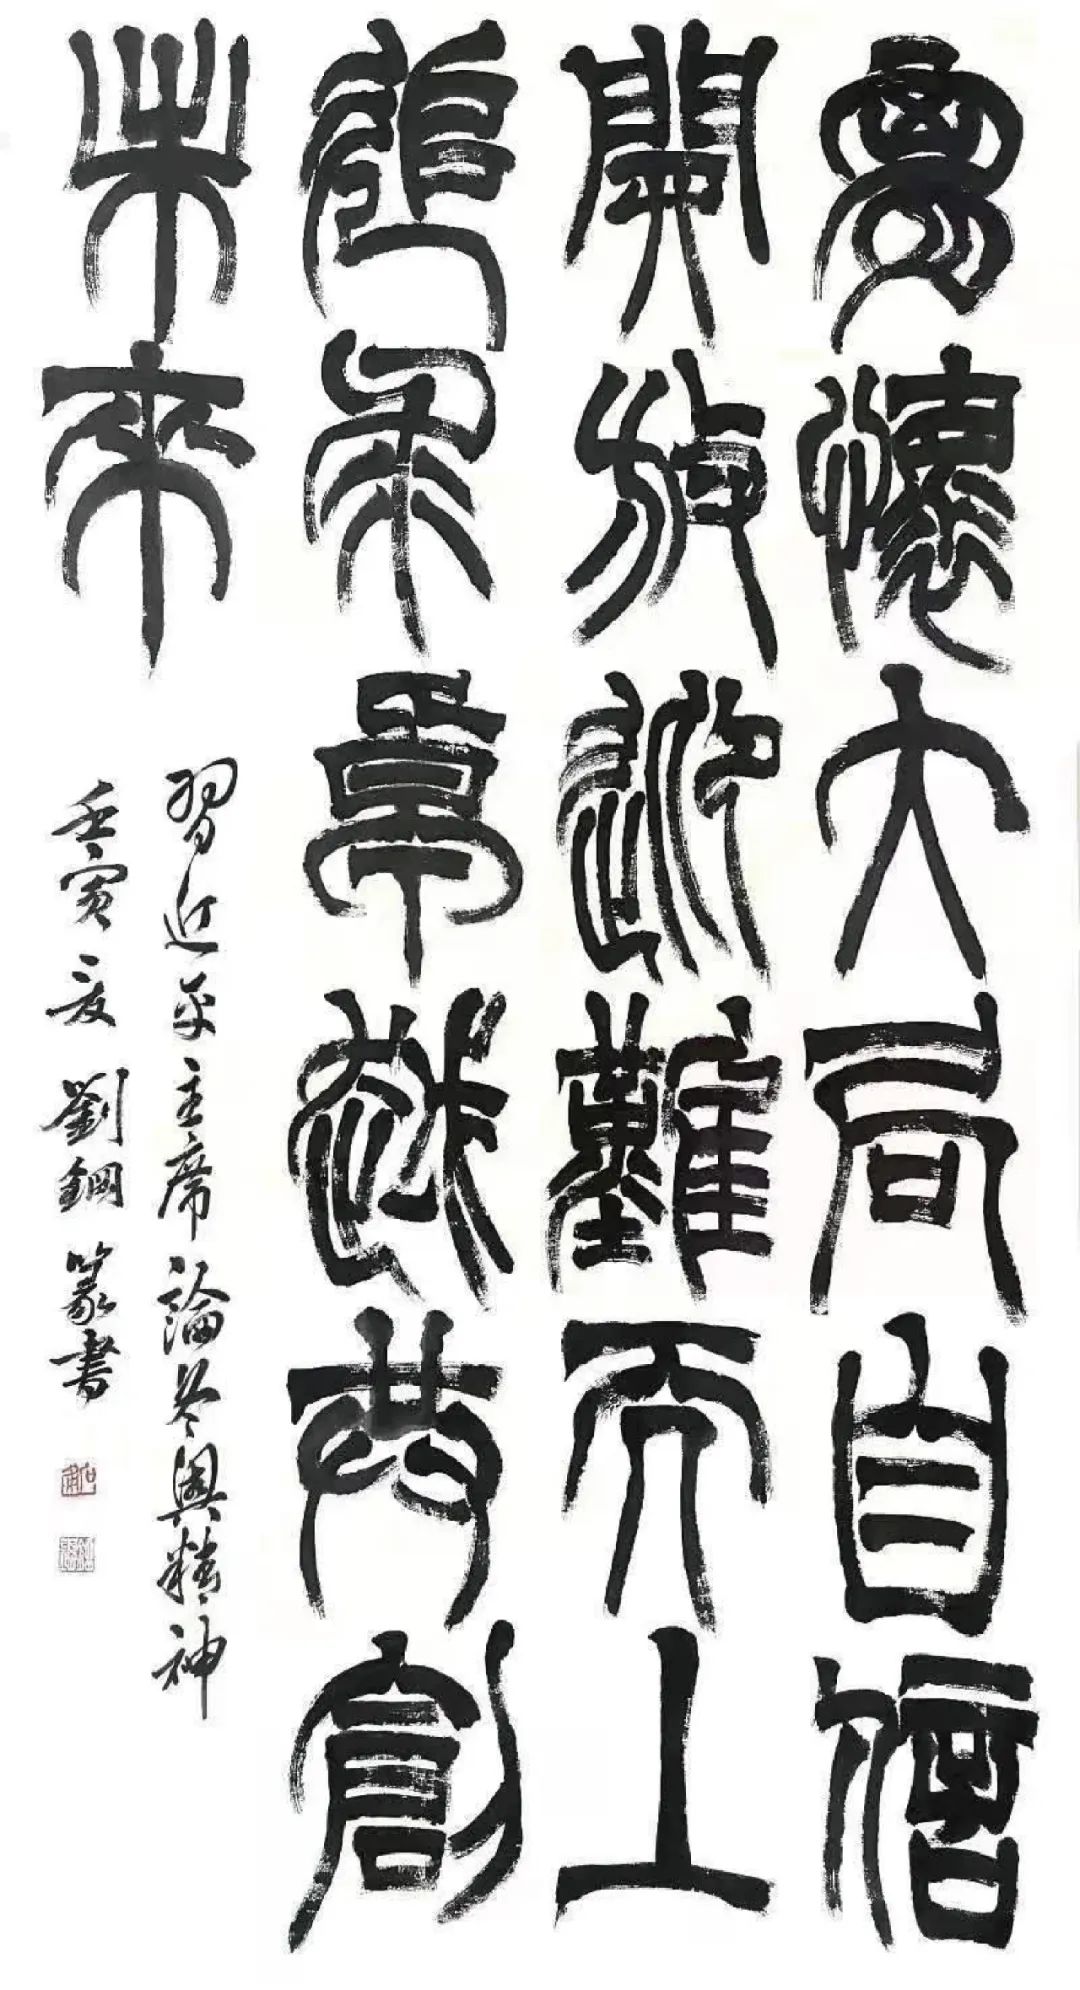 胸懷大局自信
開放迎難而上
追求卓越共創
未來
習近平主席論冬奧精神
壬寅夏 劉鋼 篆書